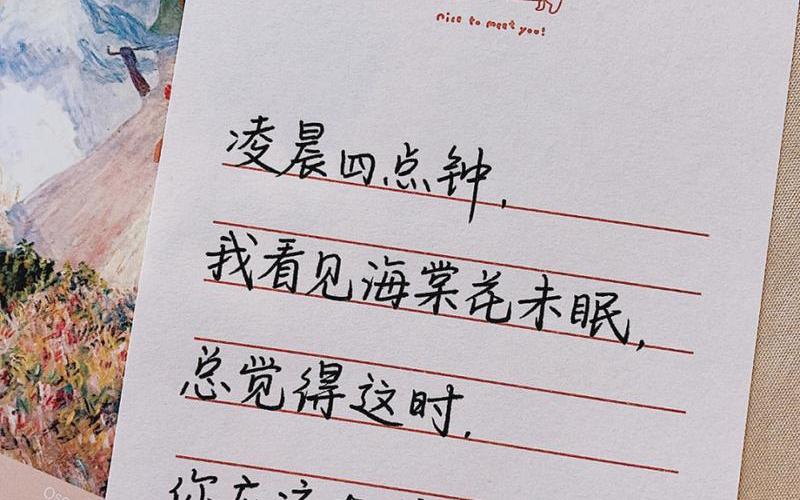 nice to meet you!
凌晨四点钟，
我看见海棠花未眠，
总觉得这时，
你应该